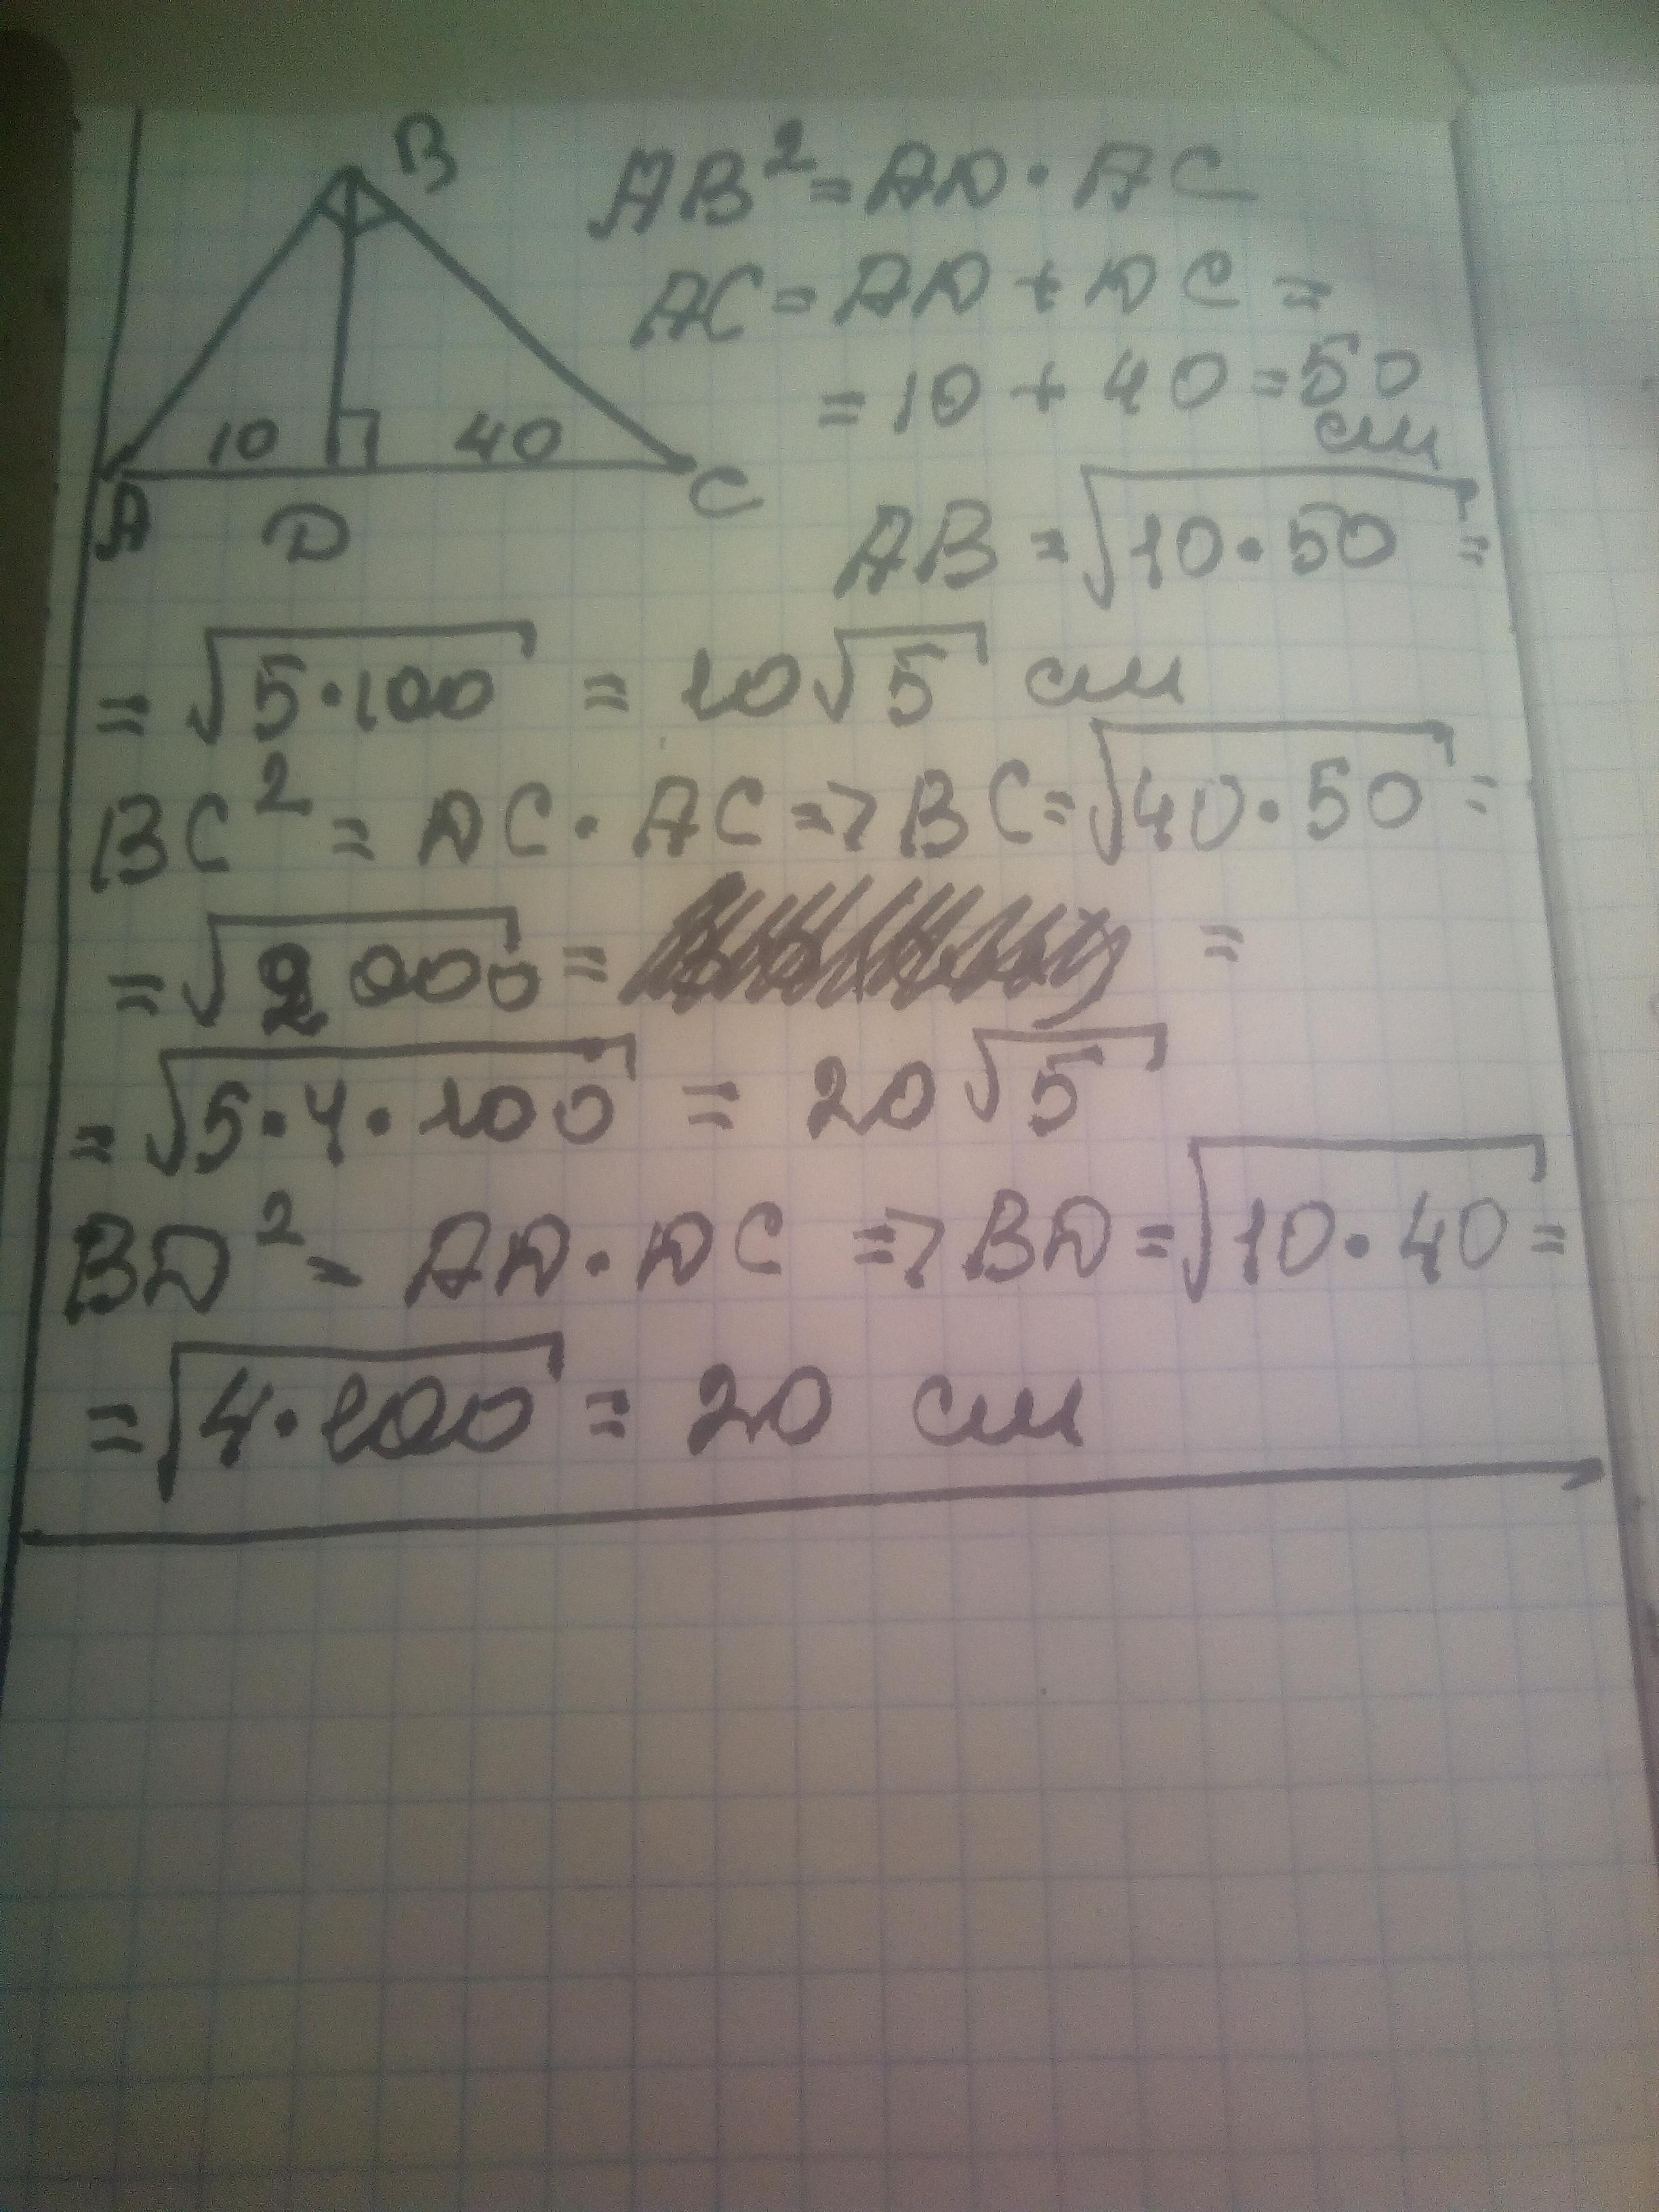 B
AB² = AD · AC
AC = AD + DC =
= 10 + 40 = 50
см
10 40
A D C
AB = √10·50 =
= √5·100 = 10√5 см
BC² = DC · AC => BC = √40·50 =
= √2000 = =
= √5·4·100 = 20√5
BD² = AD · DC => BD = √10·40 =
= √4·100 = 20 см